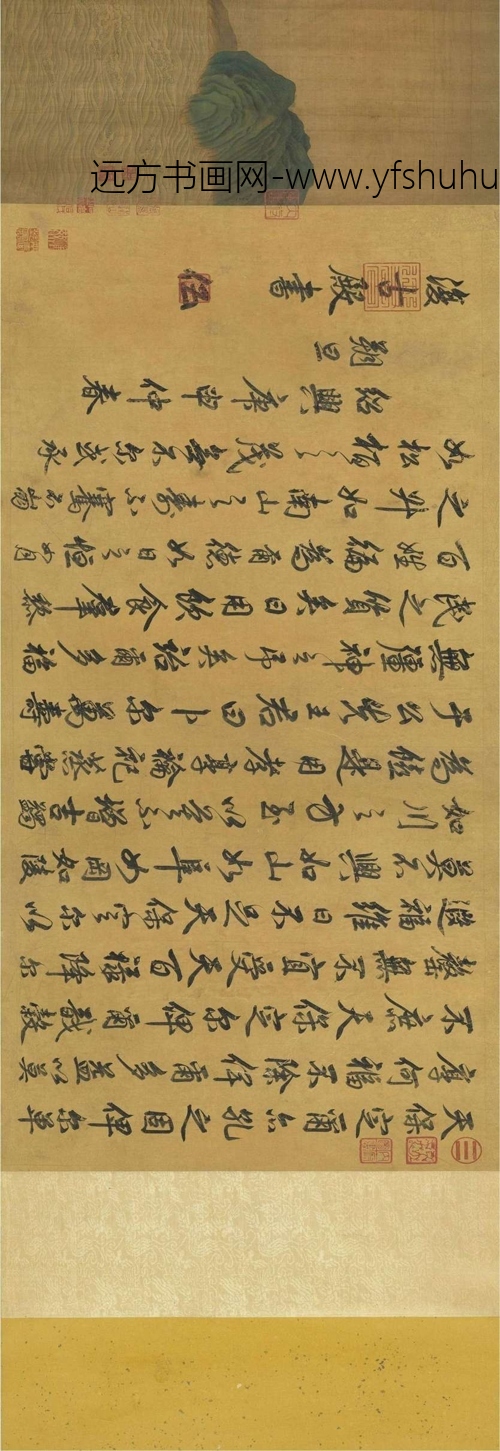 远方书画网-www.yfshuhu
天保定爾亦孔之固俾尔單
厚何福不除俾爾多益以莫
不庶天保定尔俾爾戩穀
罄無不宜受天百祿降尔
遐福維日不足天保定尔以
莫不興如山如阜如岡如陵
如川之方至以莫不增吉蠲
為饎是用孝享禴祀烝嘗
于公先王君曰卜尔萬壽
無疆神之弔矣詒爾多福
民之質矣日用飲食羣黎
百姓徧為爾德如日之恒如月
之升如南山之壽不騫不崩
如松柏之茂無不尔或承
紹興庚申仲春
朔旦
復古殿書